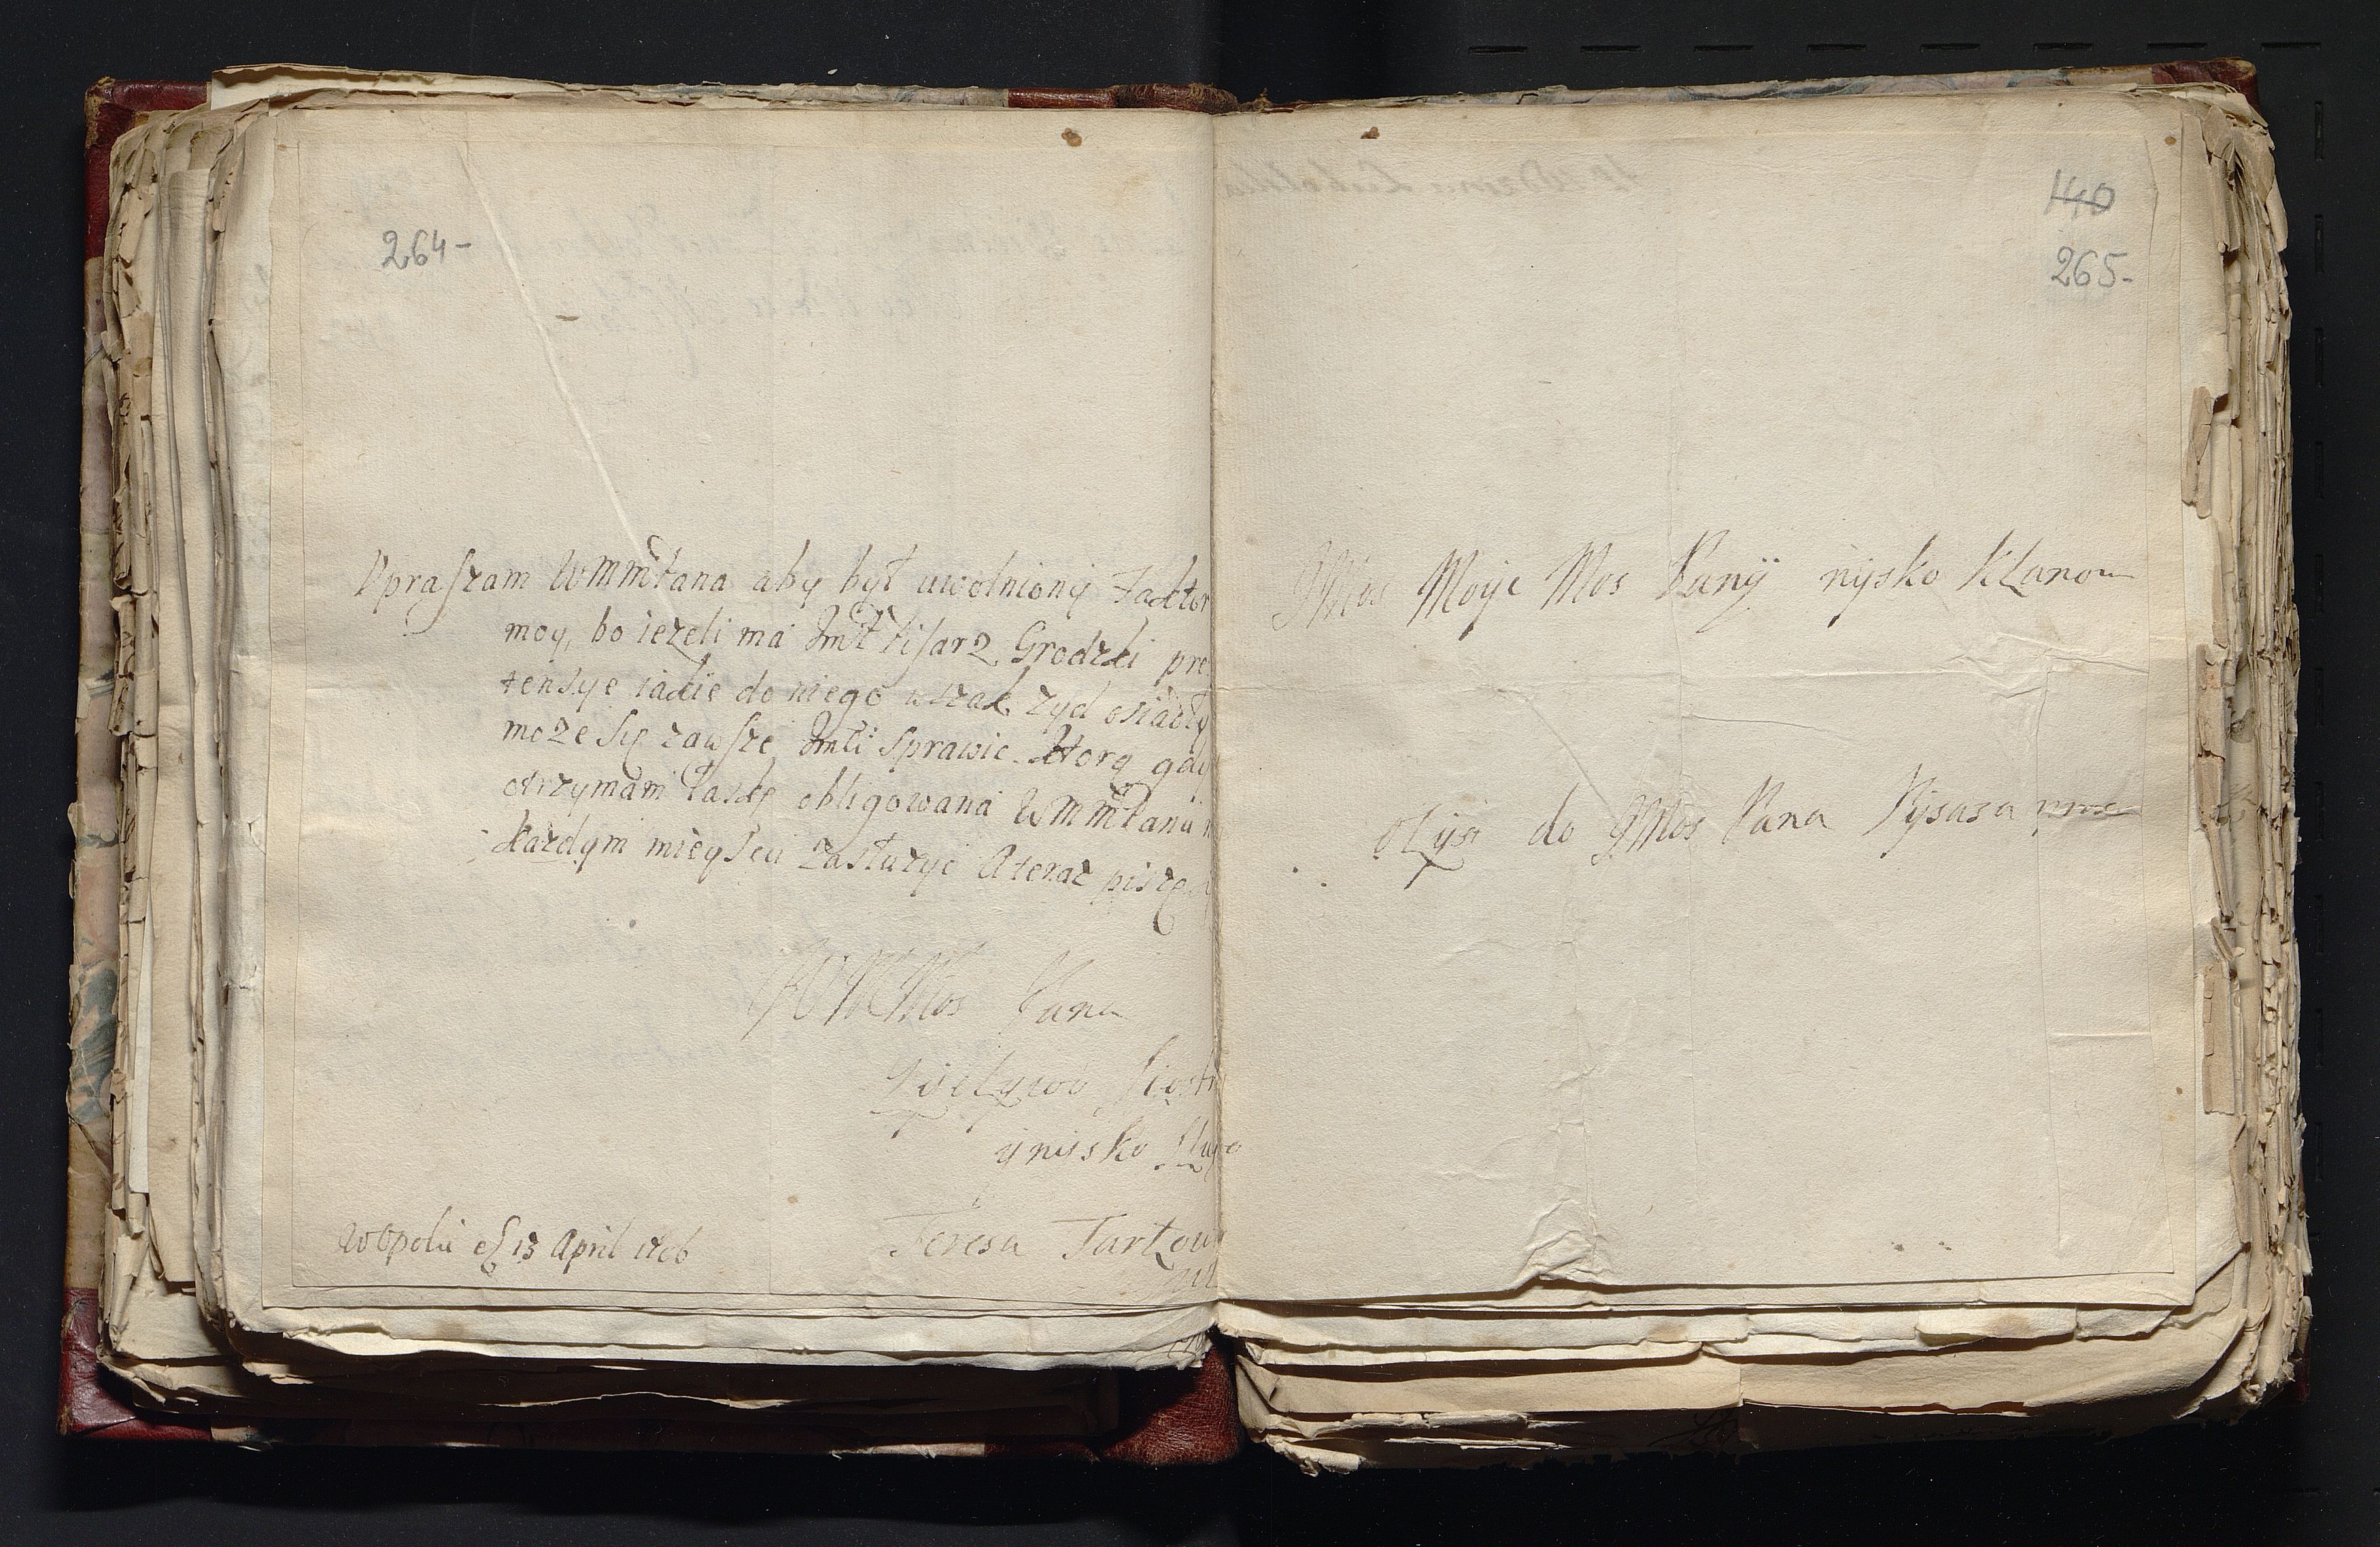 264-
Upraszam WMMPana aby był uwolniony Faktor
moy, bo iezeli ma JmP Pisarz Grodzki pre
tensye iakie do niego wszak zyd osiadły
moze się zawsze Jmci sprawic. Ktorą gdy
otrzymam łaskę obligowana WMMPanu
kazdym mieyscu zasłuzyc A teraz piszę
WMMMos Pana
siostr
y nisko
Teresa Tarłow
W Opolu 13 April 1706
140
265-
JMos Moye Mos Pany nysko kłanom
do JMos Pana Pysasa